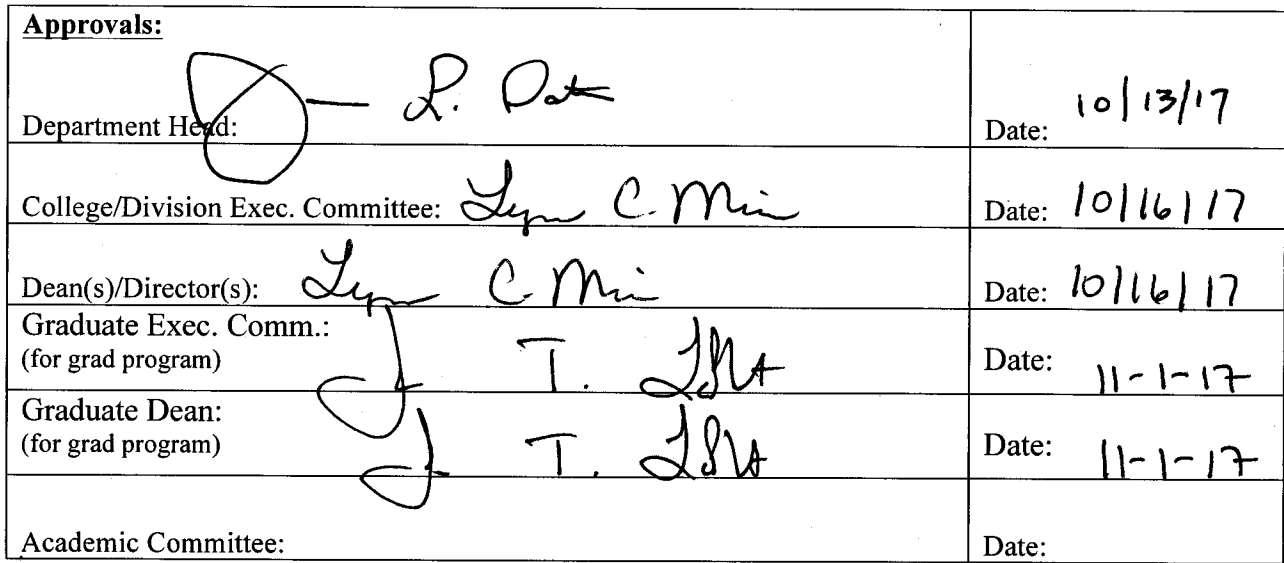 Approvals:
Department Head: L. Date: 10/13/17
College/Division Exec. Committee: Lynn C. Date: 10/16/17
Dean(s)/Director(s): Lynn C. Date: 10/16/17
Graduate Exec. Comm.:
(for grad program) J T. Date: 11-1-17
Graduate Dean:
(for grad program) J T. Date: 11-1-17
Academic Committee: Date: